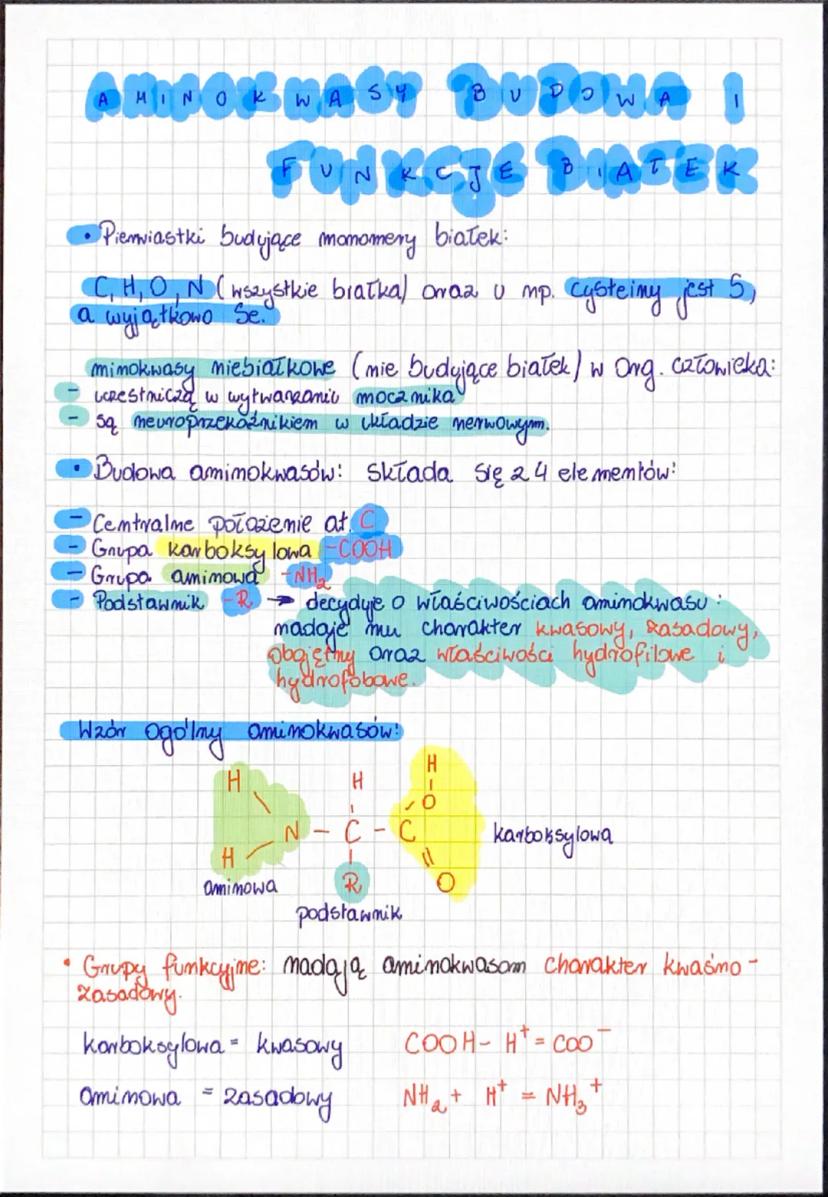 AMINOKWASY BUDOWA I
FUNKCJE BIAŁEK
• Pierwiastki budujące monomery białek:
C, H, O, N (wszystkie białka) oraz u np. cysteiny jest S,
a wyjątkowo Se.
minokwasy niebiałkowe (nie budujące białek) w org. człowieka:
- uczestniczą w wytwarzaniu mocznika
- są neuroprzekaźnikiem w układzie nerwowym.
• Budowa aminokwasów: składa się z 4 elementów:
- Centralne położenie at. C
- Grupa karboksylowa -COOH
- Grupa aminowa -NH₂
- Podstawnik -R → decyduje o właściwościach aminokwasu:
nadaje mu charakter kwasowy, zasadowy,
obojętny oraz właściwości hydrofilowe i
hydrofobowe.
Wzór ogólny aminokwasów:
H
H H
O
N - C - C karboksylowa
H
R O
aminowa
podstawnik
• Grupy funkcyjne: nadają aminokwasom charakter kwaśno-
zasadowy.
karboksylowa = kwasowy COOH - H⁺ = COO⁻
aminowa = zasadowy NH₂ + H⁺ = NH₃⁺